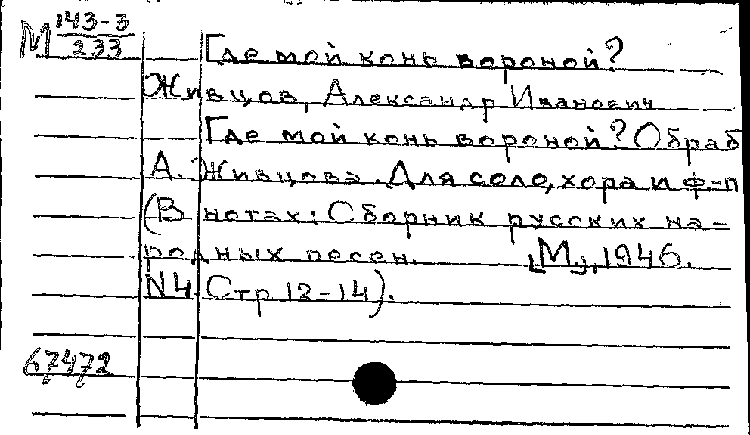 М 143-3
233
Где мой конь вороной?
Живцов, Александр Иванович
Где мой конь вороной? Обраб
А. Живцова. Для соло, хора и ф-п
(В нотах: Сборник русских на-
родных песен. [М], 1946.
N4. Стр 12-14).
67472